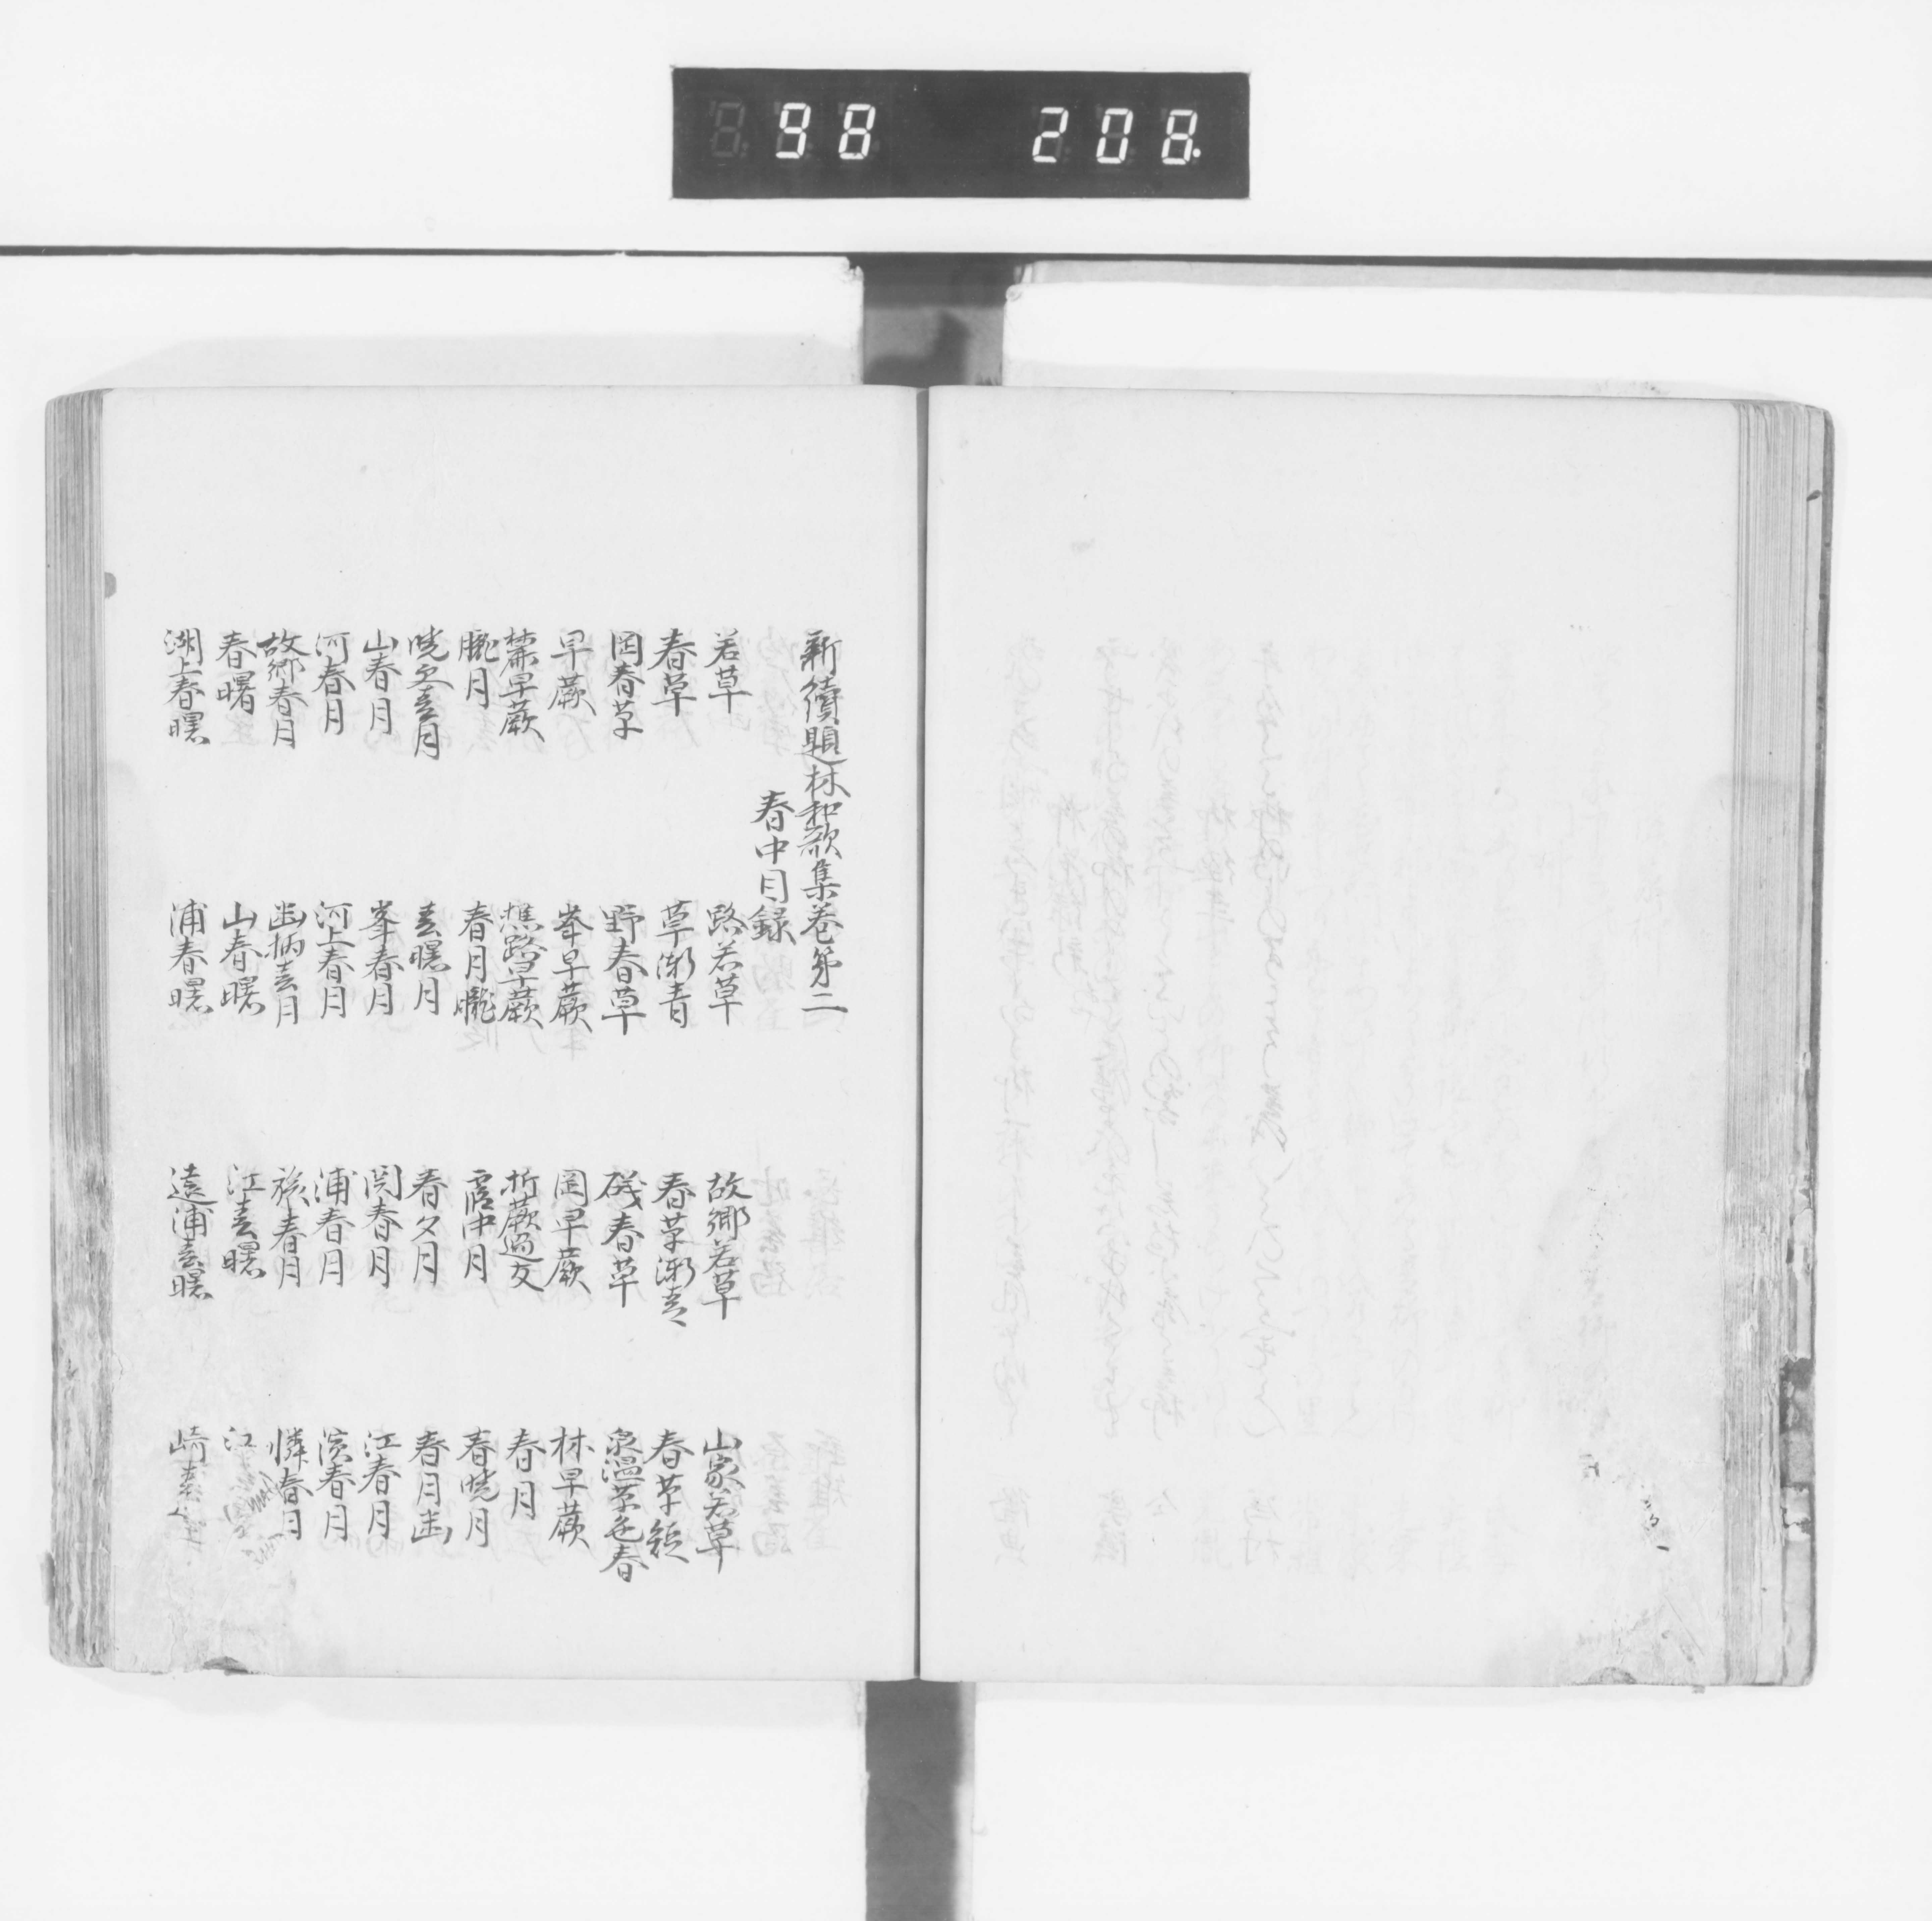 98 208.
新續題林和歌集巻第二
春中目録
若草 路若草 故郷若草 山家若草
春草 草漸青 春草漸青 春草短
岡春草 野春草 磯春草 泉温草色春
早蕨 峯早蕨 岡早蕨 林早蕨
麓早蕨 樵路早蕨 折蕨遇友 春月
朧月 春月朧 霞中月 春暁月
暁更春月 春曙月 春夕月 春月幽
山春月 峯春月 関春月 江春月
河春月 河上春月 浦春月 濱春月
故郷春月 幽栖春月 旅春月 憐春月
春曙 山春曙 江春曙 江
湖上春曙 浦春曙 遠浦春曙 崎春